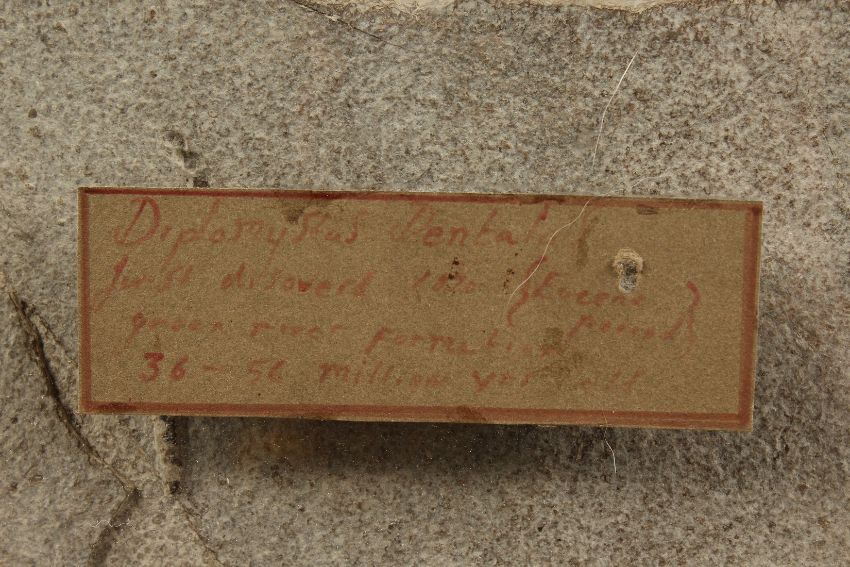 Diplomystus Dentat
first disoverd (Eocene)
green river formation period
36 - 56 million yrs old